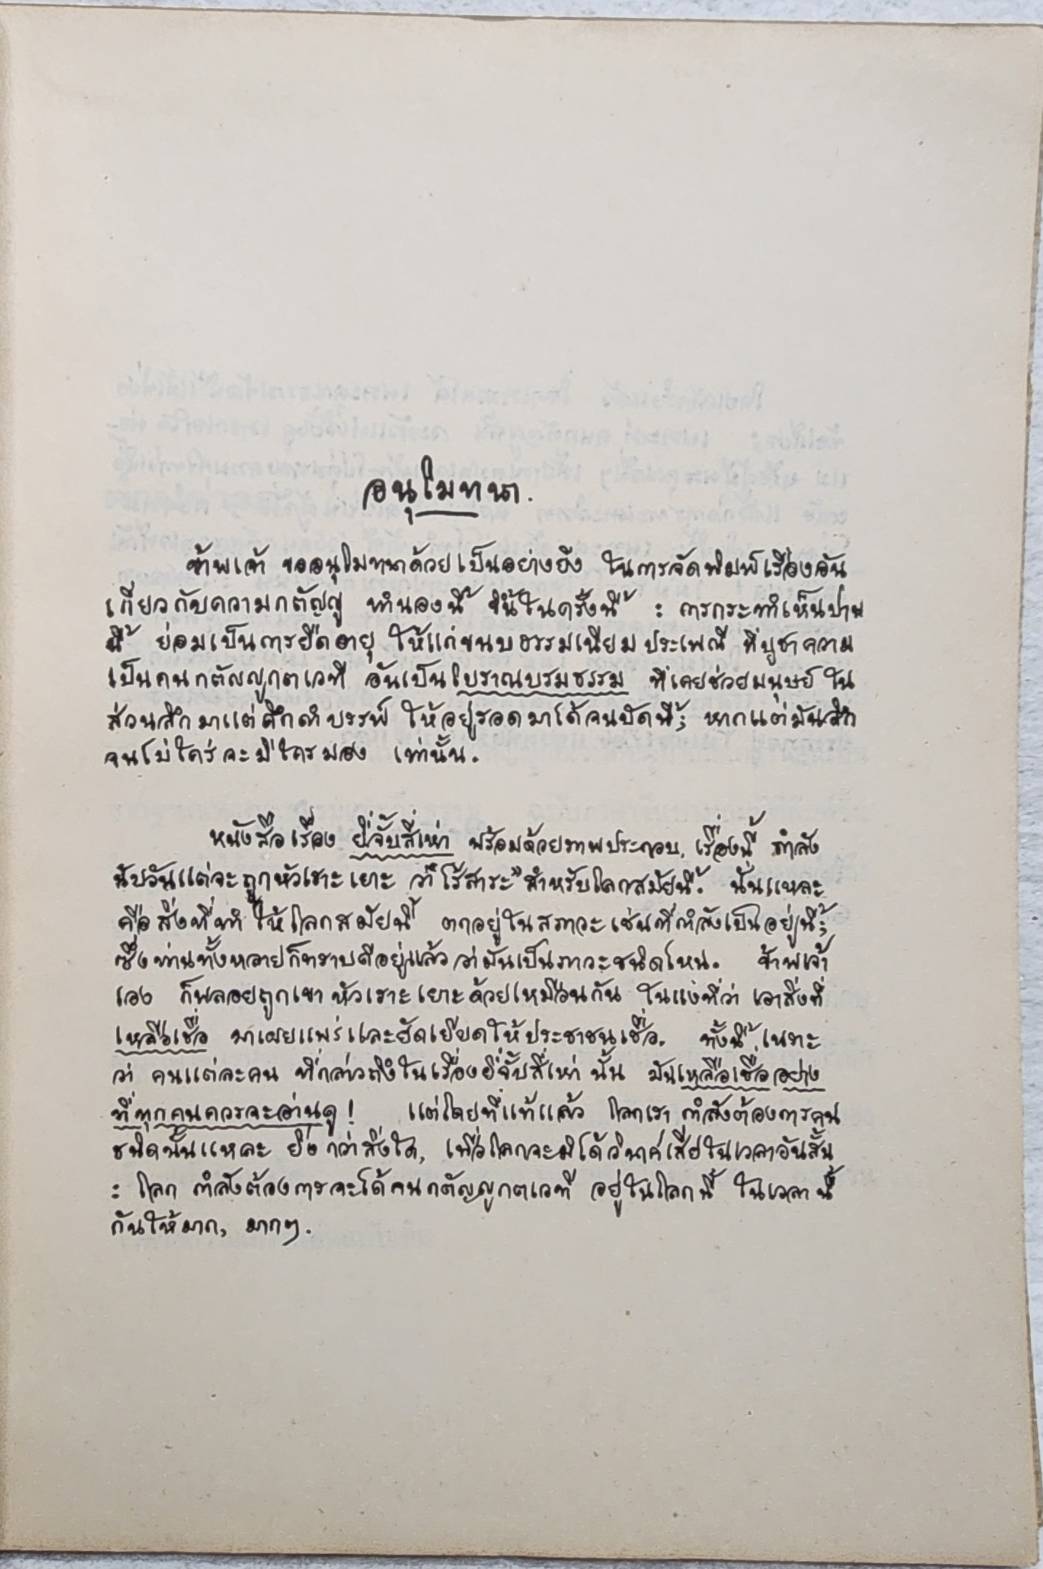 อนุโมทนา.
ข้าพเจ้า ขออนุโมทนาด้วยเป็นอย่างยิ่ง ในการจัดพิมพ์เรื่องอัน
เกี่ยวกับความกตัญญู ทำนองนี้ ขึ้นในครั้งนี้ : การกระทำเห็นปาน
นี้ ย่อมเป็นการยืดอายุ ให้แก่ขนบธรรมเนียมประเพณี ที่บูชาความ
เป็นคนกตัญญูกตเวที อันเป็นโบราณบรมธรรม ที่เคยช่วยมนุษย์ใน
ส่วนลึกมาแต่ดึกดำบรรพ์ ให้อยู่รอดมาได้จนบัดนี้; หากแต่มันลึก
จนไม่ใคร่จะมีใครมอง เท่านั้น.
หนังสือเรื่อง ยี่จั้บสี่เห่า พร้อมด้วยภาพประกอบ, เรื่องนี้ กำลัง
นับวันแต่จะถูกหัวเราะเยาะ ว่า "ไร้สาระ" สำหรับโลกสมัยนี้. นั่นแหละ
คือสิ่งที่ทำให้โลกสมัยนี้ ตกอยู่ในสภาวะเช่นที่กำลังเป็นอยู่นี้;
ซึ่งท่านทั้งหลายก็ทราบดีอยู่แล้ว ว่ามันเป็นภาวะชนิดไหน. ข้าพเจ้า
เอง ก็พลอยถูกเขาหัวเราะเยาะด้วยเหมือนกัน ในแง่ที่ว่า เอาสิ่งที่
เหลือเชื่อ มาเผยแพร่และยัดเยียดให้ประชาชนเชื่อ. ทั้งนี้ เพราะ
ว่า คนแต่ละคน ที่กล่าวถึงในเรื่องยี่จั้บสี่เห่านั้น มันเหลือเชื่ออย่าง
ที่ทุกคนควรจะอ่านดู! แต่โดยที่แท้แล้ว โลกเรา กำลังต้องการคน
ชนิดนั้นแหละ ยิ่งกว่าสิ่งใด, เพื่อโลกจะมิได้วินาศเสียในเวลาอันสั้น
: โลก กำลังต้องการจะได้คนกตัญญูกตเวที อยู่ในโลกนี้ ในเวลานี้
กันให้มาก, มากๆ.